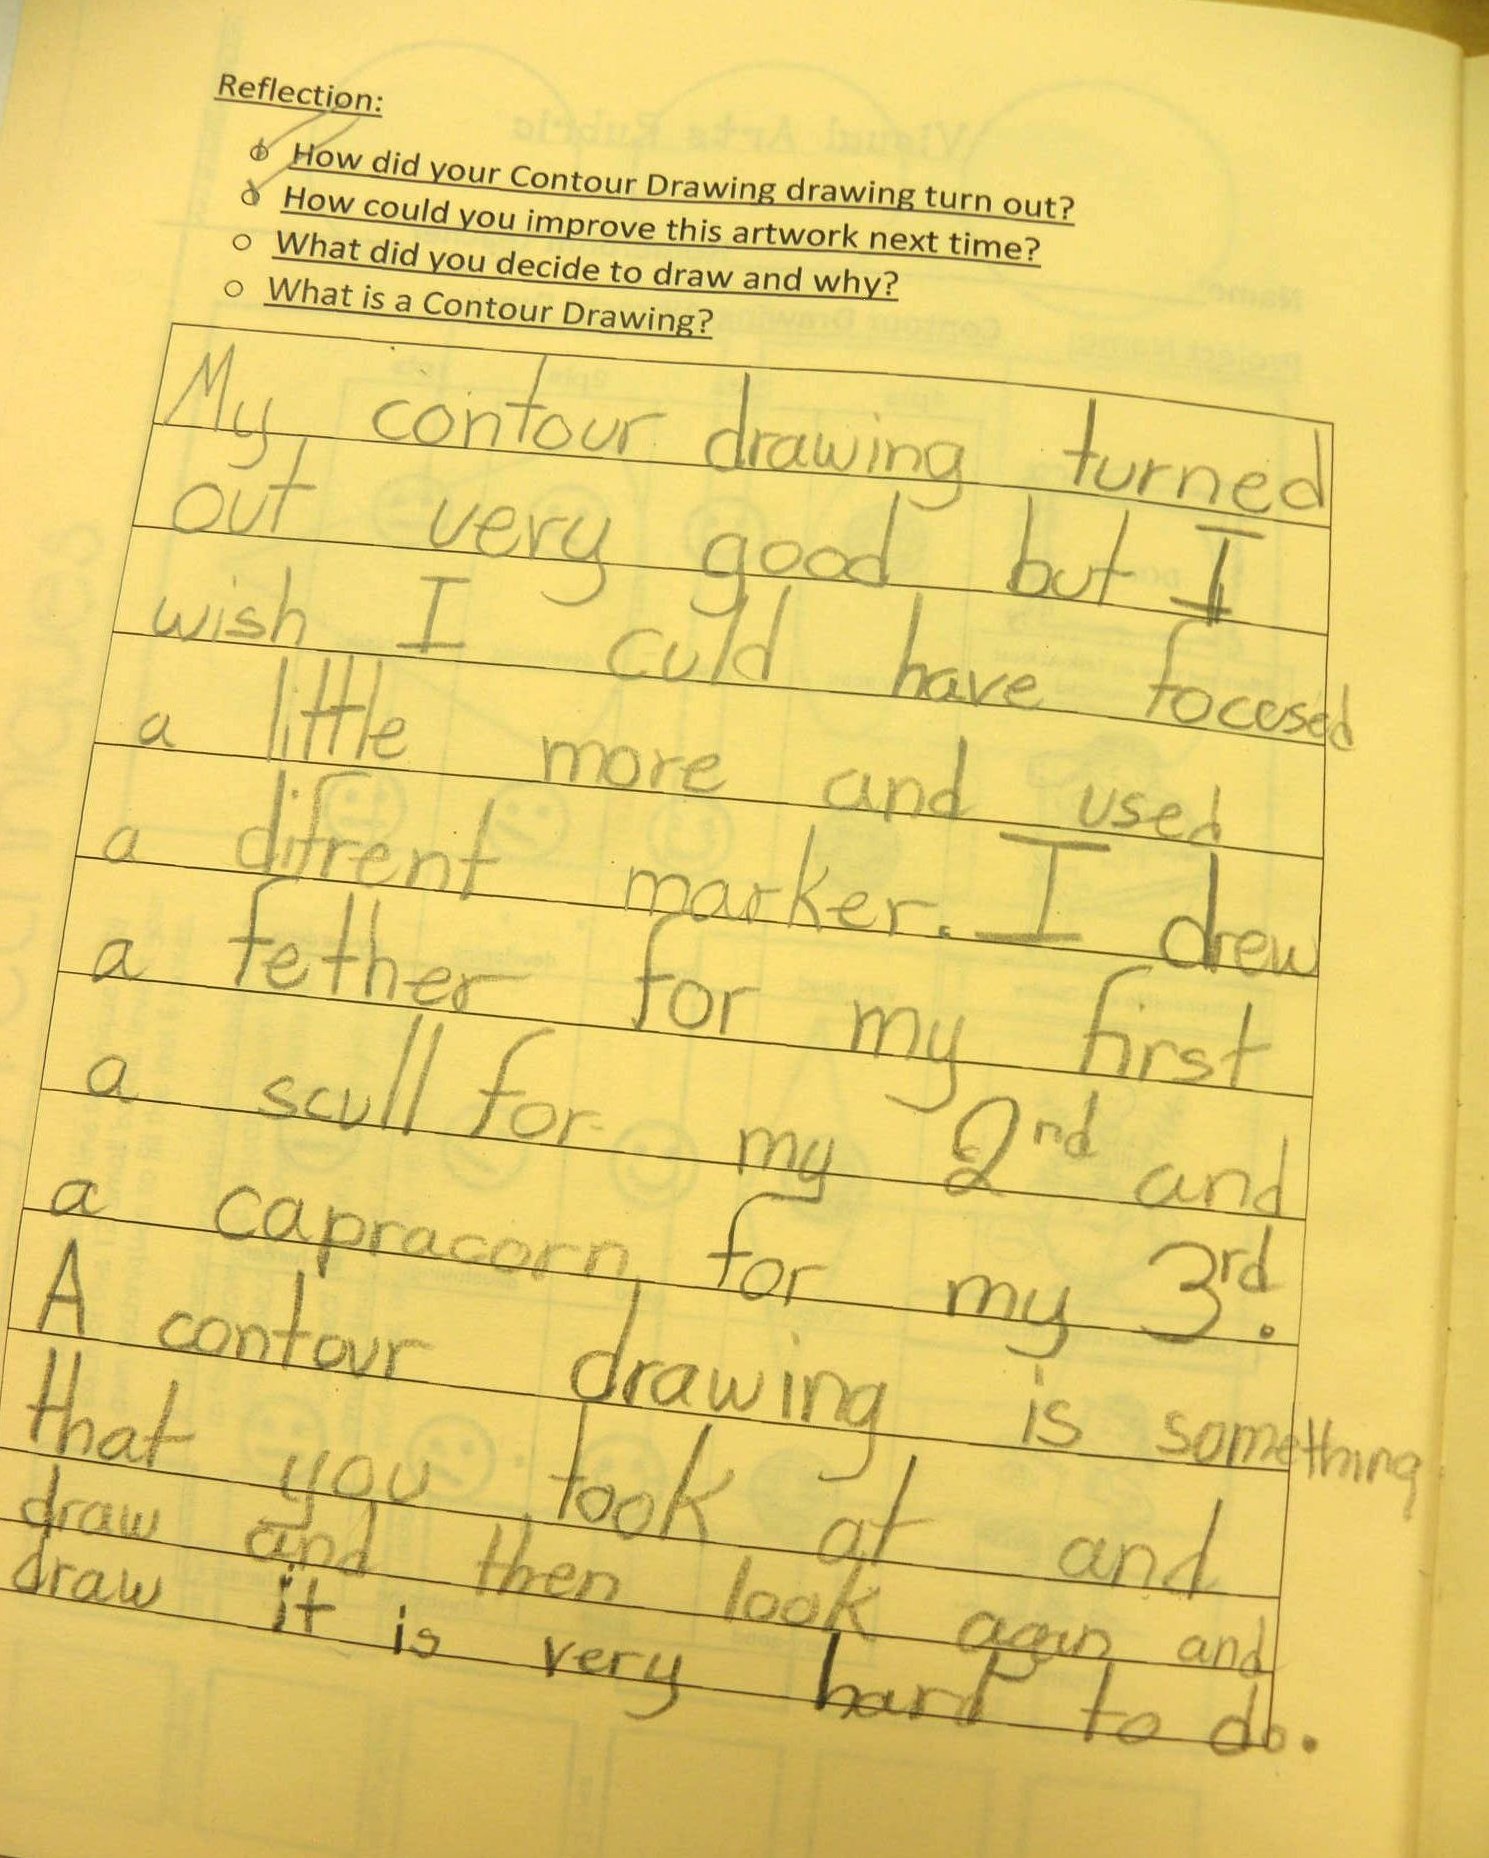 Reflection:
How did your Contour Drawing drawing turn out?
How could you improve this artwork next time?
What did you decide to draw and why?
What is a Contour Drawing?
My contour drawing turned
out very good but I
wish I culd have focused
a little more and used
a difrent marker. I drew
a fether for my first
a scull for my 2nd and
a capracorn for my 3rd.
A contour drawing is something
that you look at and
draw and then look agin and
draw it is very hard to do.